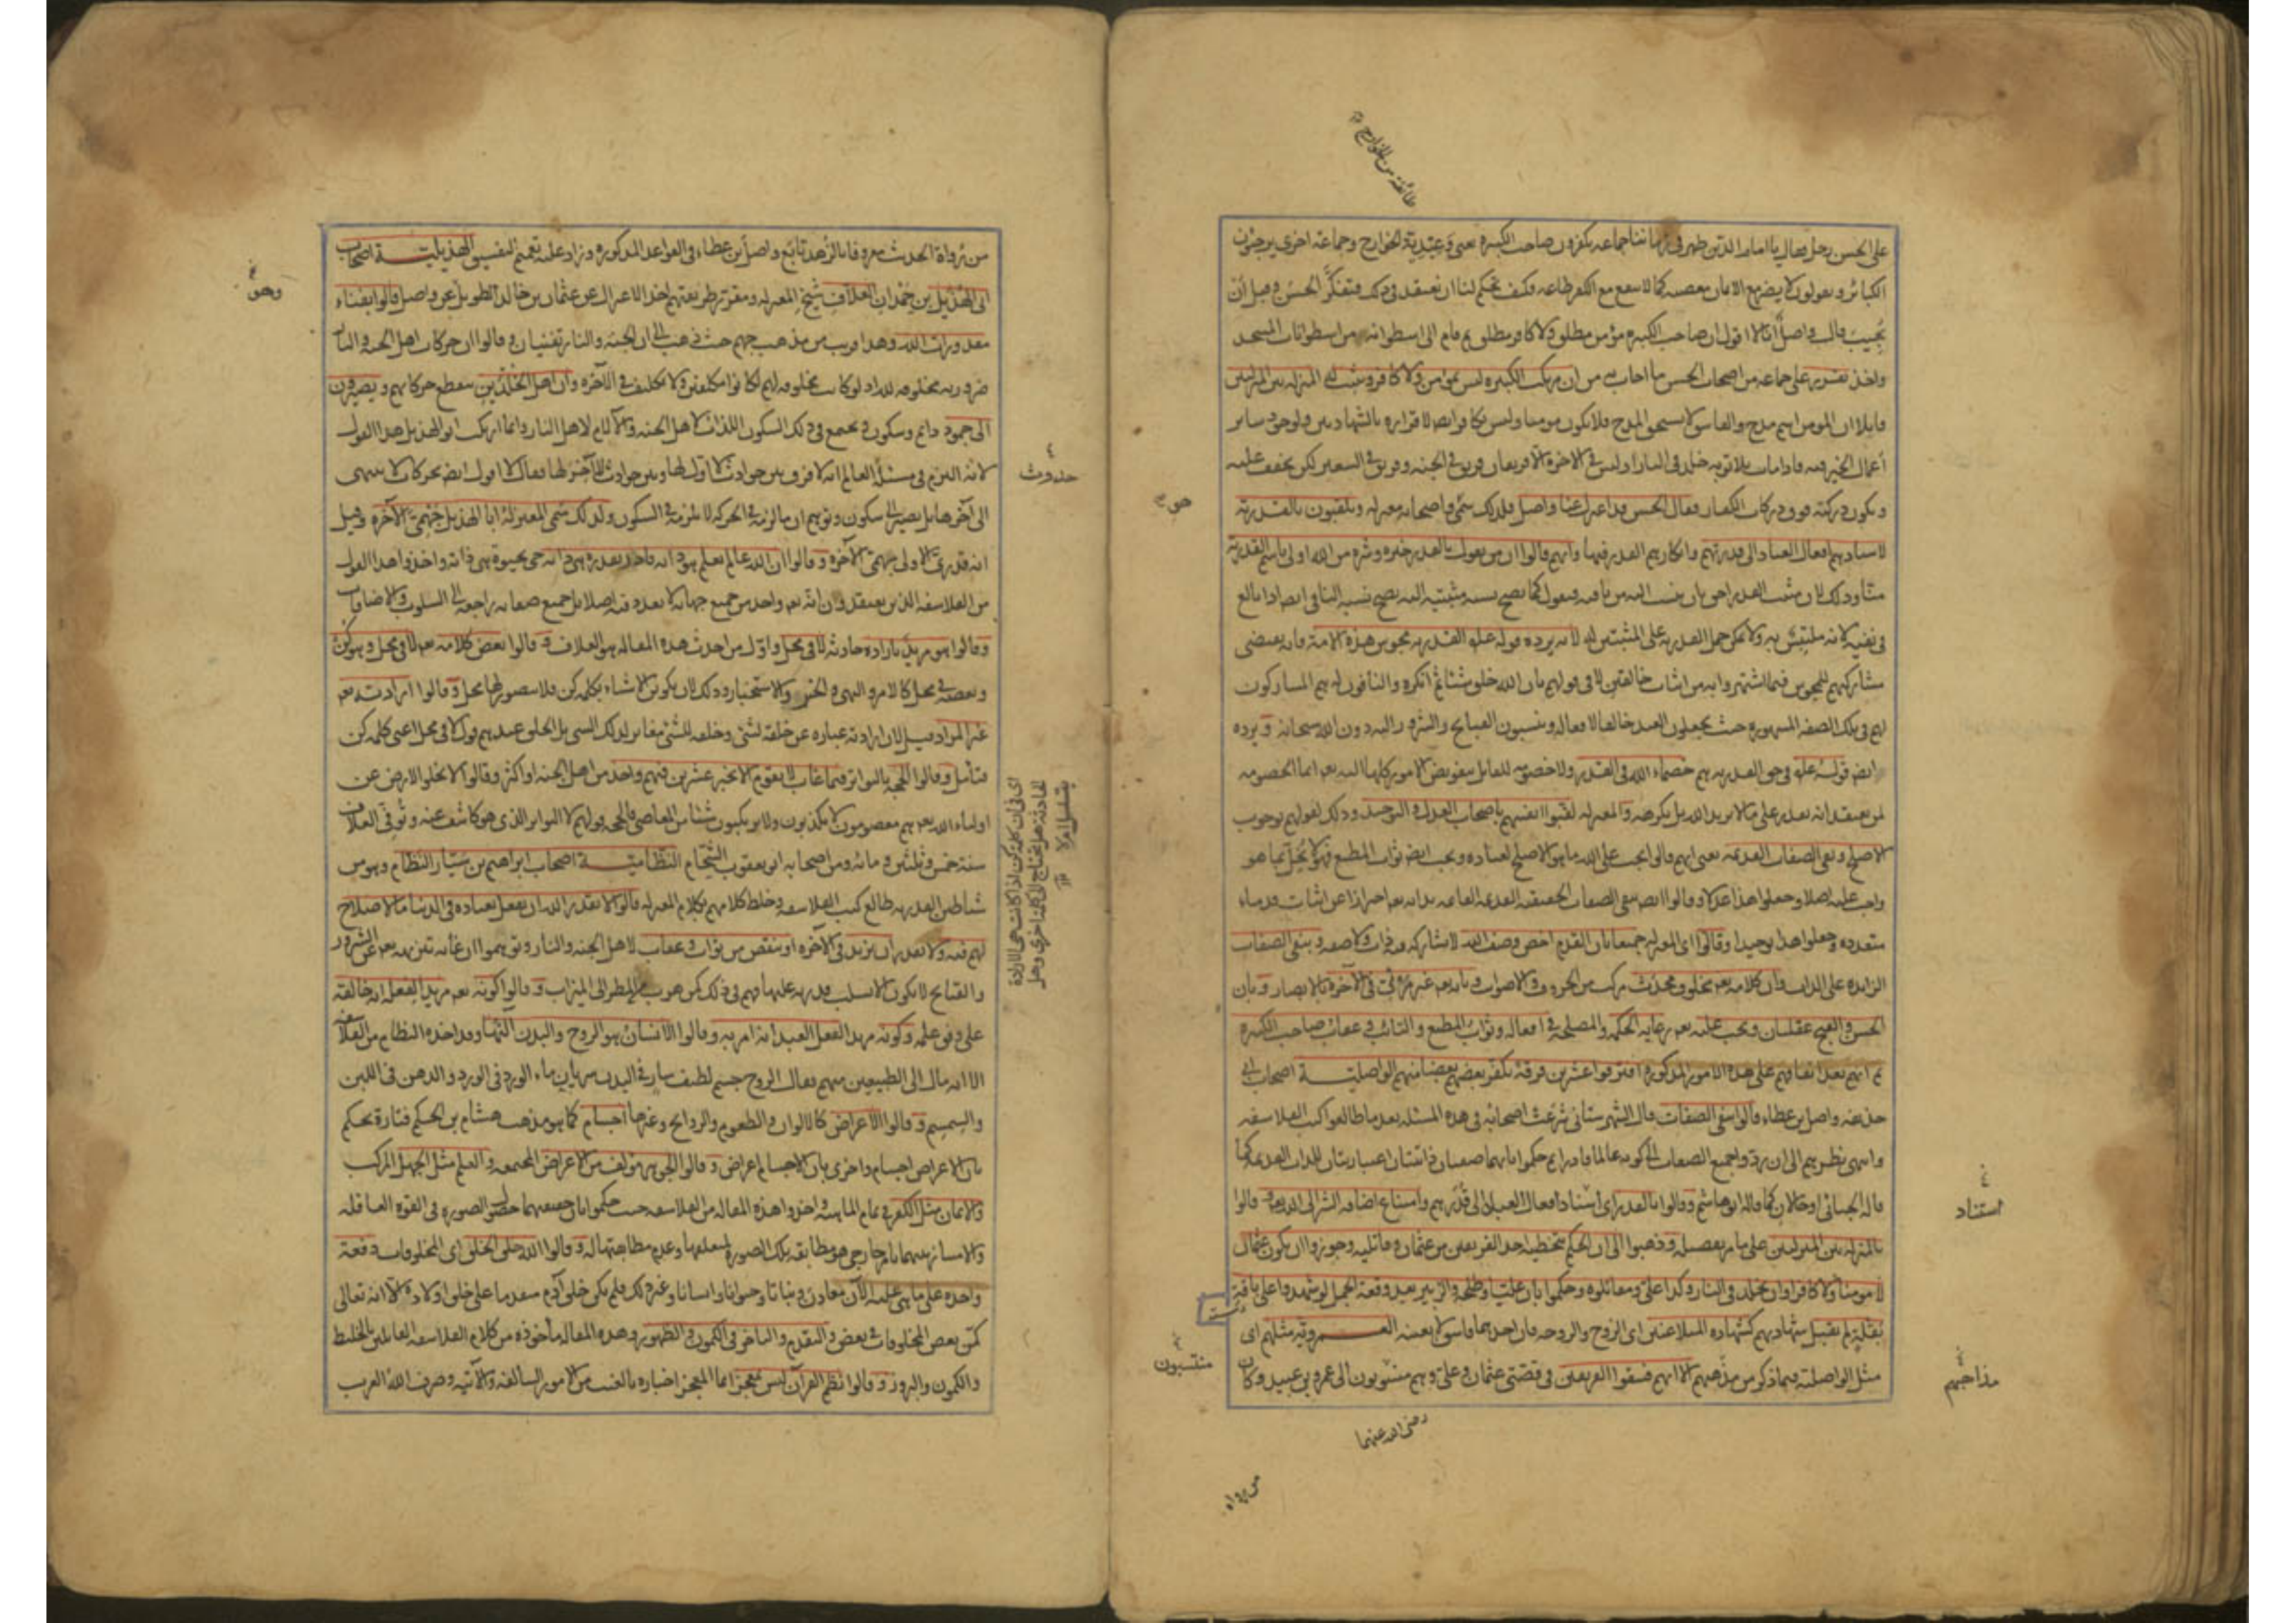 طائفة من الخوارج
على الحسن رجل فقال يا امام الدين ظهر في زماننا جماعة يكفرون صاحب الكبيرة يعنى وعيدية الخوارج وجماعة اخرى يرجئون
الكبائر ويقولون لا يضر مع الايمان معصية كما لا ينفع مع الكفر طاعة فكيف تحكم لنا ان نعتقد في ذلك فتفكر الحسن وقبل ان
يجيب قال واصل انا لا اقول ان صاحب الكبيرة مؤمن مطلق ولا كافر مطلق ثم قام الى اسطوانة من اسطوانات المسجد
واخذ يقرر على جماعة من اصحاب الحسن ما اجاب به من ان مرتكب الكبيرة ليس بمؤمن ولا كافر ويثبت له المنزلة بين المنزلتين
قايلا ان المؤمن اسم مدح والفاسق لا يستحق المدح فلا يكون مومنا وليس بكافر ايضا لاقراره بالشهادتين ولوجود ساير
اعمال الخير فيه فاذا مات بلا توبة خلد في النار اذ ليس في الاخرة الا فريقان فريق في الجنة وفريق في السعير لكن يخفف عليه
ويكون دركته فوق دركات الكفار فقال الحسن قد اعتزل عنا واصل فلذلك سمى هو واصحابه معتزلة ويلقبون بالقدرية
لاسنادهم افعال العباد الى قدرتهم وانكارهم القدر فيها وانهم قالوا ان من يقول بالقدر خيره وشره من الله اولى باسم القدرية
منا وذلك لان مثبت القدر احق بان ينسب اليه من نافيه فنقول كما يصح نسبة مثبتيه اليه يصح نسبة النافى ايضا اذا بالغ
في نفيه لانه ملتبس به ولا يمكن حمل القدرية على المثبتين له لانه يرده قوله عليه القدرية مجوس هذه الامة فانه يقتضى
مشاركتهم للمجوس فيما اشتهروا به من اثبات خالقين لا في قولهم بان الله خلق شيئا ثم انكره والنافون له هم المشاركون
لهم في تلك الصفة المشهورة حيث يجعلون العبد خالقا لافعاله وينسبون القبايح والشرور اليه دون الله سبحانه ويرده
ايضا قوله عليه في حق القدرية هم خصماء الله في القدر ولا خصومة للقايل بتفويض الامور كلها اليه تعالى انما الخصومة
لمن يعتقد انه يقدر على ما لا يريد الله بل يكرهه والمعتزلة لقبوا انفسهم باصحاب العدل والتوحيد وذلك لقولهم بوجوب
الاصلح ونفى الصفات القديمة يعنى انهم قالوا يجب على الله ما هو الاصلح لعباده ويجب ايضا ثواب المطيع فهو لا يخل بما هو
واجب عليه اصلا وجعلوا هذا عدلا وقالوا ايضا بنفى الصفات الحقيقية القديمة القائمة بذاته تعالى احترازا عن اثبات قدماء
متعددة وجعلوا هذا توحيدا وقالوا اى المعتزلة جميعا بان القدم اخص وصف الله لا يشاركه فيه ذات ولا صفة وبنفى الصفات
الزايدة على الذات وبان كلامه تعالى مخلوق محدث مركب من الحروف والاصوات وبانه تعالى غير مرئى في الآخرة بالابصار وبان
الحسن والقبح عقليان ويجب عليه تعالى رعاية الحكمة والمصلحة في افعاله وثواب المطيع والتائب وعقاب صاحب الكبيرة
ثم انهم بعد اتفاقهم على هذه الامور المذكورة افترقوا عشرين فرقة يكفر بعضهم بعضا منهم الواصلية اصحاب ابى
حذيفة واصل بن عطاء قالوا بنفى الصفات قال الشهرستانى شرعت اصحابه في هذه المسئلة بعد ما طالعوا كتب الفلاسفة
وانتهى نظرهم الى ان ردوا جميع الصفات الى كونه عالما قادرا ثم حكموا بانهما صفتان ذاتيتان اعتباريتان للذات القديمة كما
قاله الجبائى او حالان كما قاله ابو هاشم وقالوا بالقدر اى اسناد افعال العباد الى قدرهم وامتناع اضافة الشر الى الله تعالى وقالوا
بالمنزلة بين المنزلتين على ما مر تفصيله وذهبوا الى ان الحكم بتخطئة احد الفريقين من عثمان وقاتليه وجوزوا ان يكون عثمان
لا مومنا ولا كافرا وان يخلد في النار وكذا على ومقاتلوه وحكموا بان عليا وطلحة والزبير بعد وقعة الجمل لو شهدوا على باقة
بقلة لم تقبل شهادتهم كشهادة المتلاعنين اى الزوج والزوجة فان احدهما فاسق لا بعينه العمروية مثلهم اى
مثل الواصلية فيما ذكر من مذهبهم الا انهم فسقوا الفريقين في قصتى عثمان وعلى وهم منسوبون الى عمرو بن عبيد وكان
هو
استناد
مذاهبهم
منتسبون
رضى الله عنهما
من رواه
من رواة الحديث معروفا بالزهد تابع واصل بن عطاء في القواعد المذكورة وزاد عليه تعميم التفسيق الهذيلية اصحاب
ابى الهذيل بن حمدان العلاف شيخ المعتزلة ومقرر طريقتهم اخذ الاعتزال عن عثمان بن خالد الطويل عن واصل قالوا بفناء
مقدورات الله وهذا قريب من مذهب جهم حيث ذهب الى ان الجنة والنار تفنيان وقالوا ان حركات اهل الجنة والنار
ضرورية مخلوقة لله اذ لو كانت مخلوقة لهم لكانوا مكلفين ولا تكليف في الآخرة وان اهل الخلدين ينقطع حركاتهم ويصيرون
الى جمود دايم وسكون ويجتمع في ذلك السكون اللذات لاهل الجنة والآلام لاهل النار وانما ارتكب ابو الهذيل هذا القول
لانه التزم في مسئلة العالم انه لا فرق بين حوادث لا اول لها وبين حوادث لا آخر لها فقال لا اقول ايضا بحركات لا ينتهى
الى آخرها بل يصير الى سكون وتوهم ان ما لزمه في الحركة لا يلزمه في السكون ولذلك سمى المعتزلة ابا الهذيل جهمى الآخرة وقيل
انه قدرى الاولى جهمى الآخرة وقالوا ان الله عالم بعلم هو ذاته قادر بقدرة هى ذاته حى بحيوة هى ذاته واخذوا هذا القول
من الفلاسفة الذين يعتقدون انه تعالى واحد من جميع جهاته لا تعدد فيه اصلا بل جميع صفاته راجعة الى السلوب والاضافات
وقالوا هو مريد بارادة حادثة لا في محل واول من احدث هذه المقالة هو العلاف وقالوا بعض كلامه تعالى لا في محل وهو كن
وبعضه في محل كالامر والنهى والخبر والاستخبار وذلك لان تكوين الاشياء بكلمة كن فلا يتصور لها محل وقالوا ارادته تعالى
غير المراد قيل لان ارادته عبارة عن خلقه لشئ وخلقه للشئ مغاير لذلك الشئ بل الخلق عندهم قول لا في محل اعنى كلمة كن
فتأمل وقالوا الحجة بالتواتر فيما غاب لا يقوم الا بخبر عشرين فيهم واحد من اهل الجنة او اكثر وقالوا لا يخلو الارض عن
اولياء الله تعالى هم معصومون لا يكذبون ولا يرتكبون شيئا من المعاصى فالحجة قولهم لا التواتر الذى هو كاشف عنه وتوفى العلاف
سنة خمس وثلثين ومائة ومن اصحابه ابو يعقوب الشحام النظامية اصحاب ابراهيم بن سيار النظام وهو من
شياطين القدرية طالع كتب الفلاسفة وخلط كلامهم بكلام المعتزلة قالوا لا يقدر الله ان يفعل بعباده في الدنيا ما لا صلاح
لهم فيه ولا يقدر ان يزيد في الآخرة او ينقص من ثواب وعقاب لاهل الجنة والنار وتوهموا ان غاية تنزيهه تعالى عن الشرور
والقبايح لا يكون الا بسلب قدرته عليها فهم في ذلك كمن هرب من المطر الى الميزاب وقالوا كونه تعالى مريدا لفعله انه خالقه
على وفق علمه وكونه مريدا لفعل العبد انه امر به وقالوا الانسان هو الروح والبدن آلتها وقد اخذه النظام من الفلاسفة
الا انه مال الى الطبيعيين منهم فقال الروح جسم لطيف سار في البدن سريان ماء الورد في الورد والدهن في اللبن
والسمسم وقالوا الاعراض كالالوان والطعوم والروايح وغيرها اجسام كما هو مذهب هشام بن الحكم فتارة يحكم
بان الاعراض اجسام واخرى بان الاجسام اعراض وقالوا الجوهر مؤلف من الاعراض المجتمعة والعلم مثل الجهل المركب
والايمان مثل الكفر في تمام الماهية واخذوا هذه المقالة من الفلاسفة حيث حكموا بان حقيقتهما حصول الصورة في القوة العاقلة
والامتياز بينهما بامر خارجى هو مطابقة تلك الصورة لمتعلقها وعدم مطابقتها له وقالوا الله خلق الخلق اى المخلوقات دفعة
واحدة على ما هى عليه الآن معادن ونباتا وحيوانا وانسانا وغير ذلك فلم يكن خلق آدم متقدما على خلق اولاده الا انه تعالى
كمن بعض المخلوقات في بعض والتقدم والتاخر في الكمون والظهور وهذه المقالة مأخوذة من كلام الفلاسفة القائلين بالخليط
والكمون والبروز وقالوا نظم القرآن ليس بمعجز انما المعجز اخباره بالغيب من الامور السالفة والآتية وصرف الله العرب
وهو
حدوث